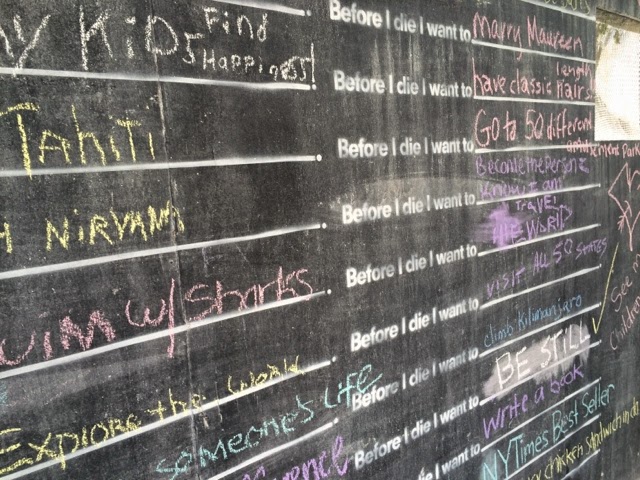 Kids Find
Happiness!
Tahiti
Nirvana
Swim w/ Sharks
Explore the World
Someone's Life
Before I die I want to Marry Maureen
Before I die I want to have classic length hairs
Before I die I want to Go to 50 different
amusement parks
Before I die I want to Become the person I
know I am
Before I die I want to Travel
the World
Before I die I want to visit all 50 states
Before I die I want to climb Kilimanjaro
Before I die I want to BE STILL
Before I die I want to Write a book
Before I die I want to NY Times Best Seller
chicken sandwich in
See my
Children